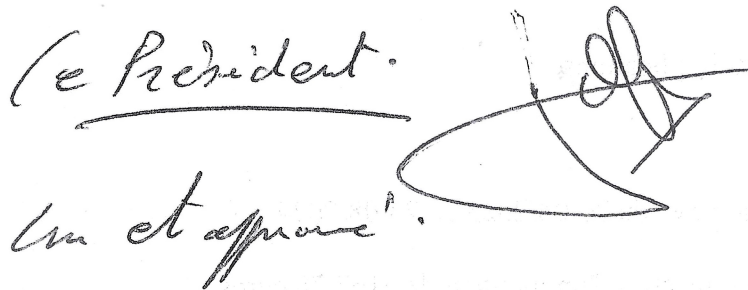 Le Président.
Lu et approuvé.